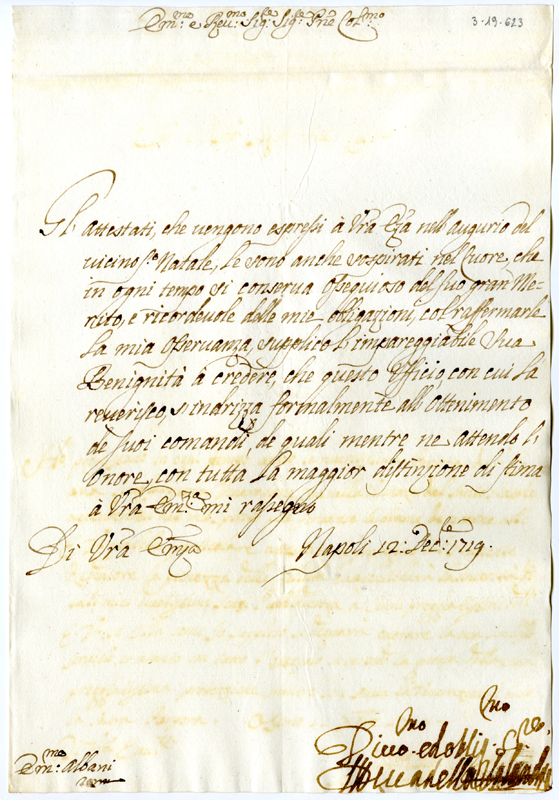 Em.mo e Reu.mo Sig.re Sig.re Pne Col.mo
3-19-623
Gl' attestati, che uengono espressi à Vra Eza nell' augurio del
uicino S.to Natale, le sono anche sospirati nel Cuore, che
in ogni tempo si conserua ossequioso del suo gran Me-
rito, e ricordeuole delle mie obbligazioni, col raffermarle
la mia osseruanza, supplico l'impareggiabile Sua
Benignità à credere, che questo Ufficio, con cui La
reuerisco, s'indrizza formalmente all' ottenimento
de suoi comandi, de quali mentre ne attendo l'
onore, con tutta la maggior distinzione di stima
à Vra Em.za mi rassegno
Di Vra Emza Napoli 12: Dec.e 1719.
Diuo. ed obblig.
Em.mo Albani